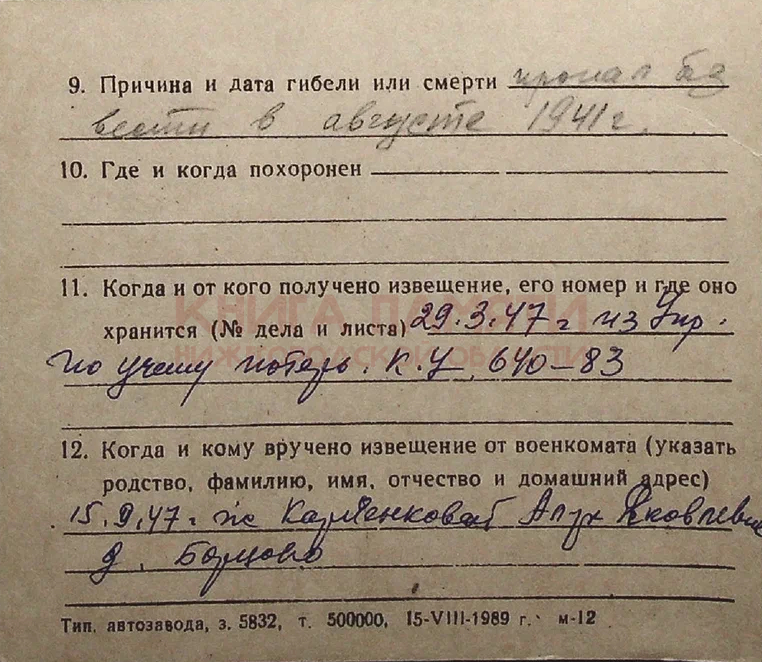 9. Причина и дата гибели или смерти пропал без
вести в августе 1941 г.
10. Где и когда похоронен
11. Когда и от кого получено извещение, его номер и где оно
КНИГА ПАМЯТИ
хранится (№ дела и листа) 29.3.47 г из Упр.
НИЖЕГОРОДСКОЙ ОБЛАСТИ
по учету потерь. К.У. 640-83
12. Когда и кому вручено извещение от военкомата (указать
родство, фамилию, имя, отчество и домашний адрес)
15.9.47 г же Яковлевне
д.
Тип. автозавода, з. 5832, т. 500000, 15-VIII-1989 г. м-12